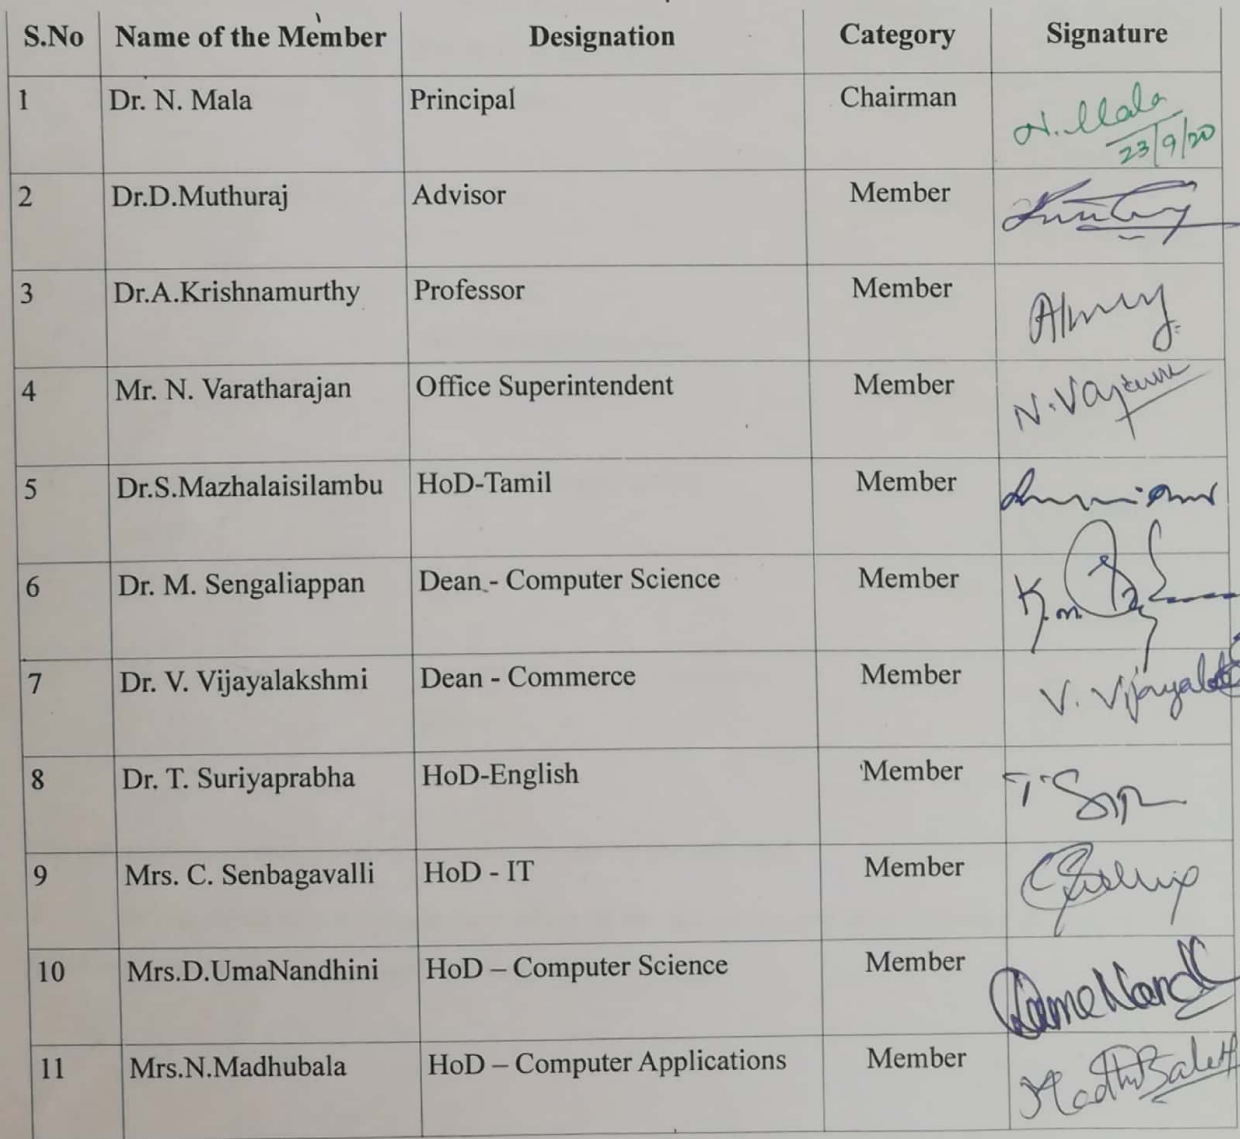 S.No Name of the Member Designation Category Signature
1 Dr. N. Mala Principal Chairman N. Mala
23/9/20
2 Dr.D.Muthuraj Advisor Member
3 Dr.A.Krishnamurthy Professor Member
4 Mr. N. Varatharajan Office Superintendent Member
5 Dr.S.Mazhalaisilambu HoD-Tamil Member
6 Dr. M. Sengaliappan Dean - Computer Science Member
7 Dr. V. Vijayalakshmi Dean - Commerce Member
8 Dr. T. Suriyaprabha HoD-English Member
9 Mrs. C. Senbagavalli HoD - IT Member
10 Mrs.D.UmaNandhini HoD – Computer Science Member
11 Mrs.N.Madhubala HoD – Computer Applications Member